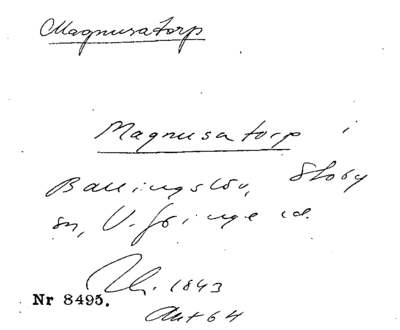 Magnusatorp
Magnusatorp i
Ballingslöv, Stoby
sn, V. Göinge hd.
1843
Nr 8495.
Akt 64